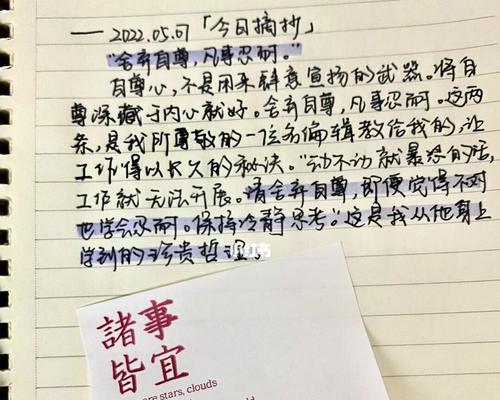 — 2022.05.07「今日摘抄」
“舍弃自尊，凡事忍耐。”
自尊心，不是用来肆意宣扬的武器。将自
尊深藏于内心就好。舍弃自尊，凡事忍耐。这两
条，是我所尊敬的一位名编辑教给我的，让
工作得以长久的秘诀。“动不动就暴怒的话，
工作就无法开展。请舍弃自尊，即便觉得不对
也学会忍耐。保持冷静思考。”这是我从他身上
学到的珍贵哲理。
小红书
諸事
皆宜
are stars, clouds